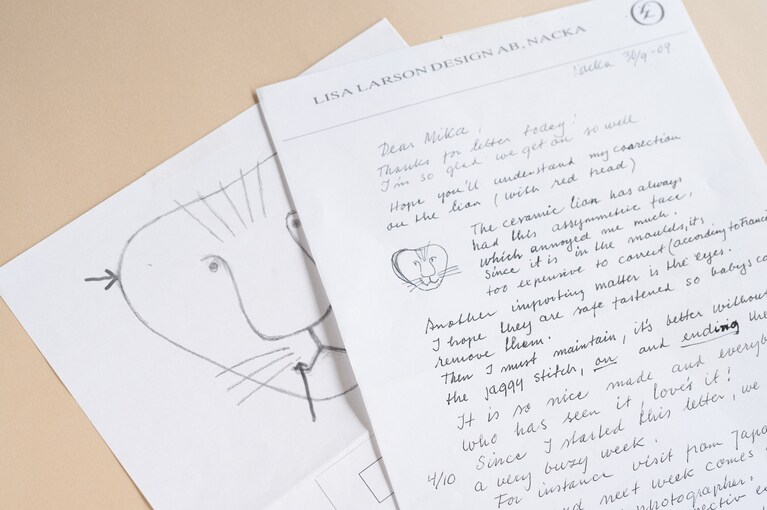 LISA LARSON DESIGN AB, NACKA
LL
Nacka 30/9-09
Dear Mika,
Thanks for letter today!
I'm so glad we get on so well.
Hope you'll understand my correction
on the lian (with red tread)
The ceramic lian has always
had this assymmetric face,
which annoyed me much.
Since it is in the moulds, it's
too expensive to correct (according to Francis
Another importing matter is the eyes.
I hope they are safe fastened so babys ca
remove them.
Then I must maintain, it's better without
the jaggy stitch, on and ending the
It is so nice made and everyb
who has seen it, love's it!
Since I started this letter, we
4/10 a very buzy week.
For instance visit from Japa
next week comes
photographer.